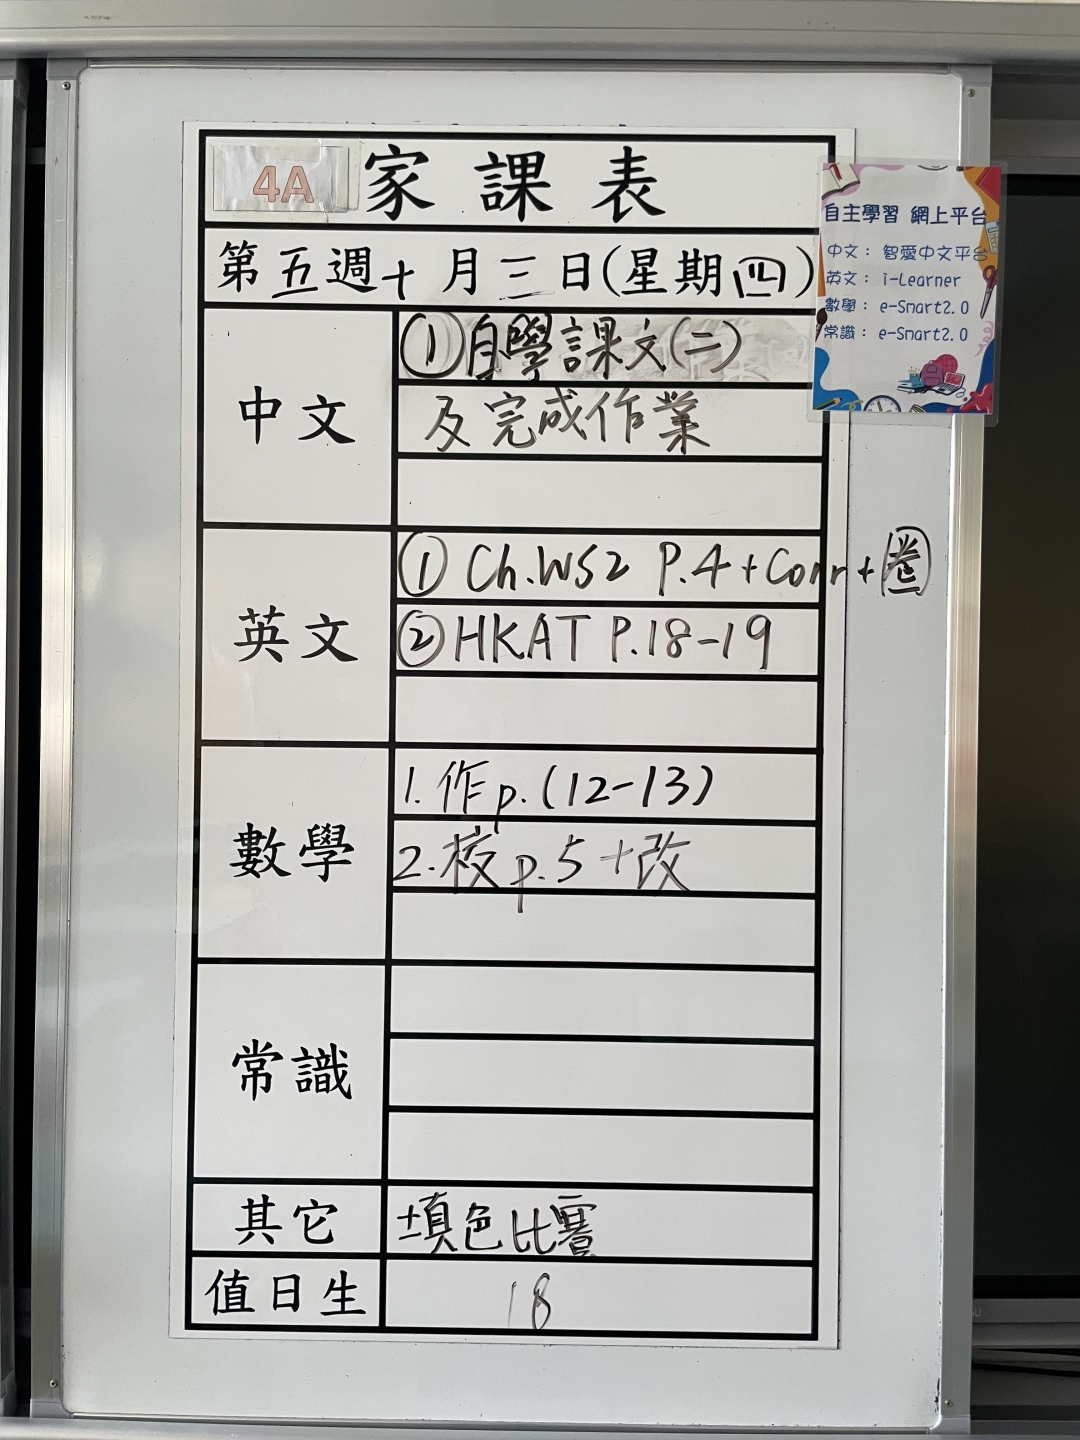 4A 家課表
第五週十月三日(星期四)
自主學習 網上平台
中文： 智愛中文平台
英文： i-Learner
數學： e-Smart2.0
常識： e-Smart2.0
中文
①自學課文(二)
及完成作業
英文
① Ch.WS2 P.4+Corr+圈
②HKAT P.18-19
數學
1.作p.(12-13)
2.校p.5+改
常識
其它
填色比賽
值日生
18